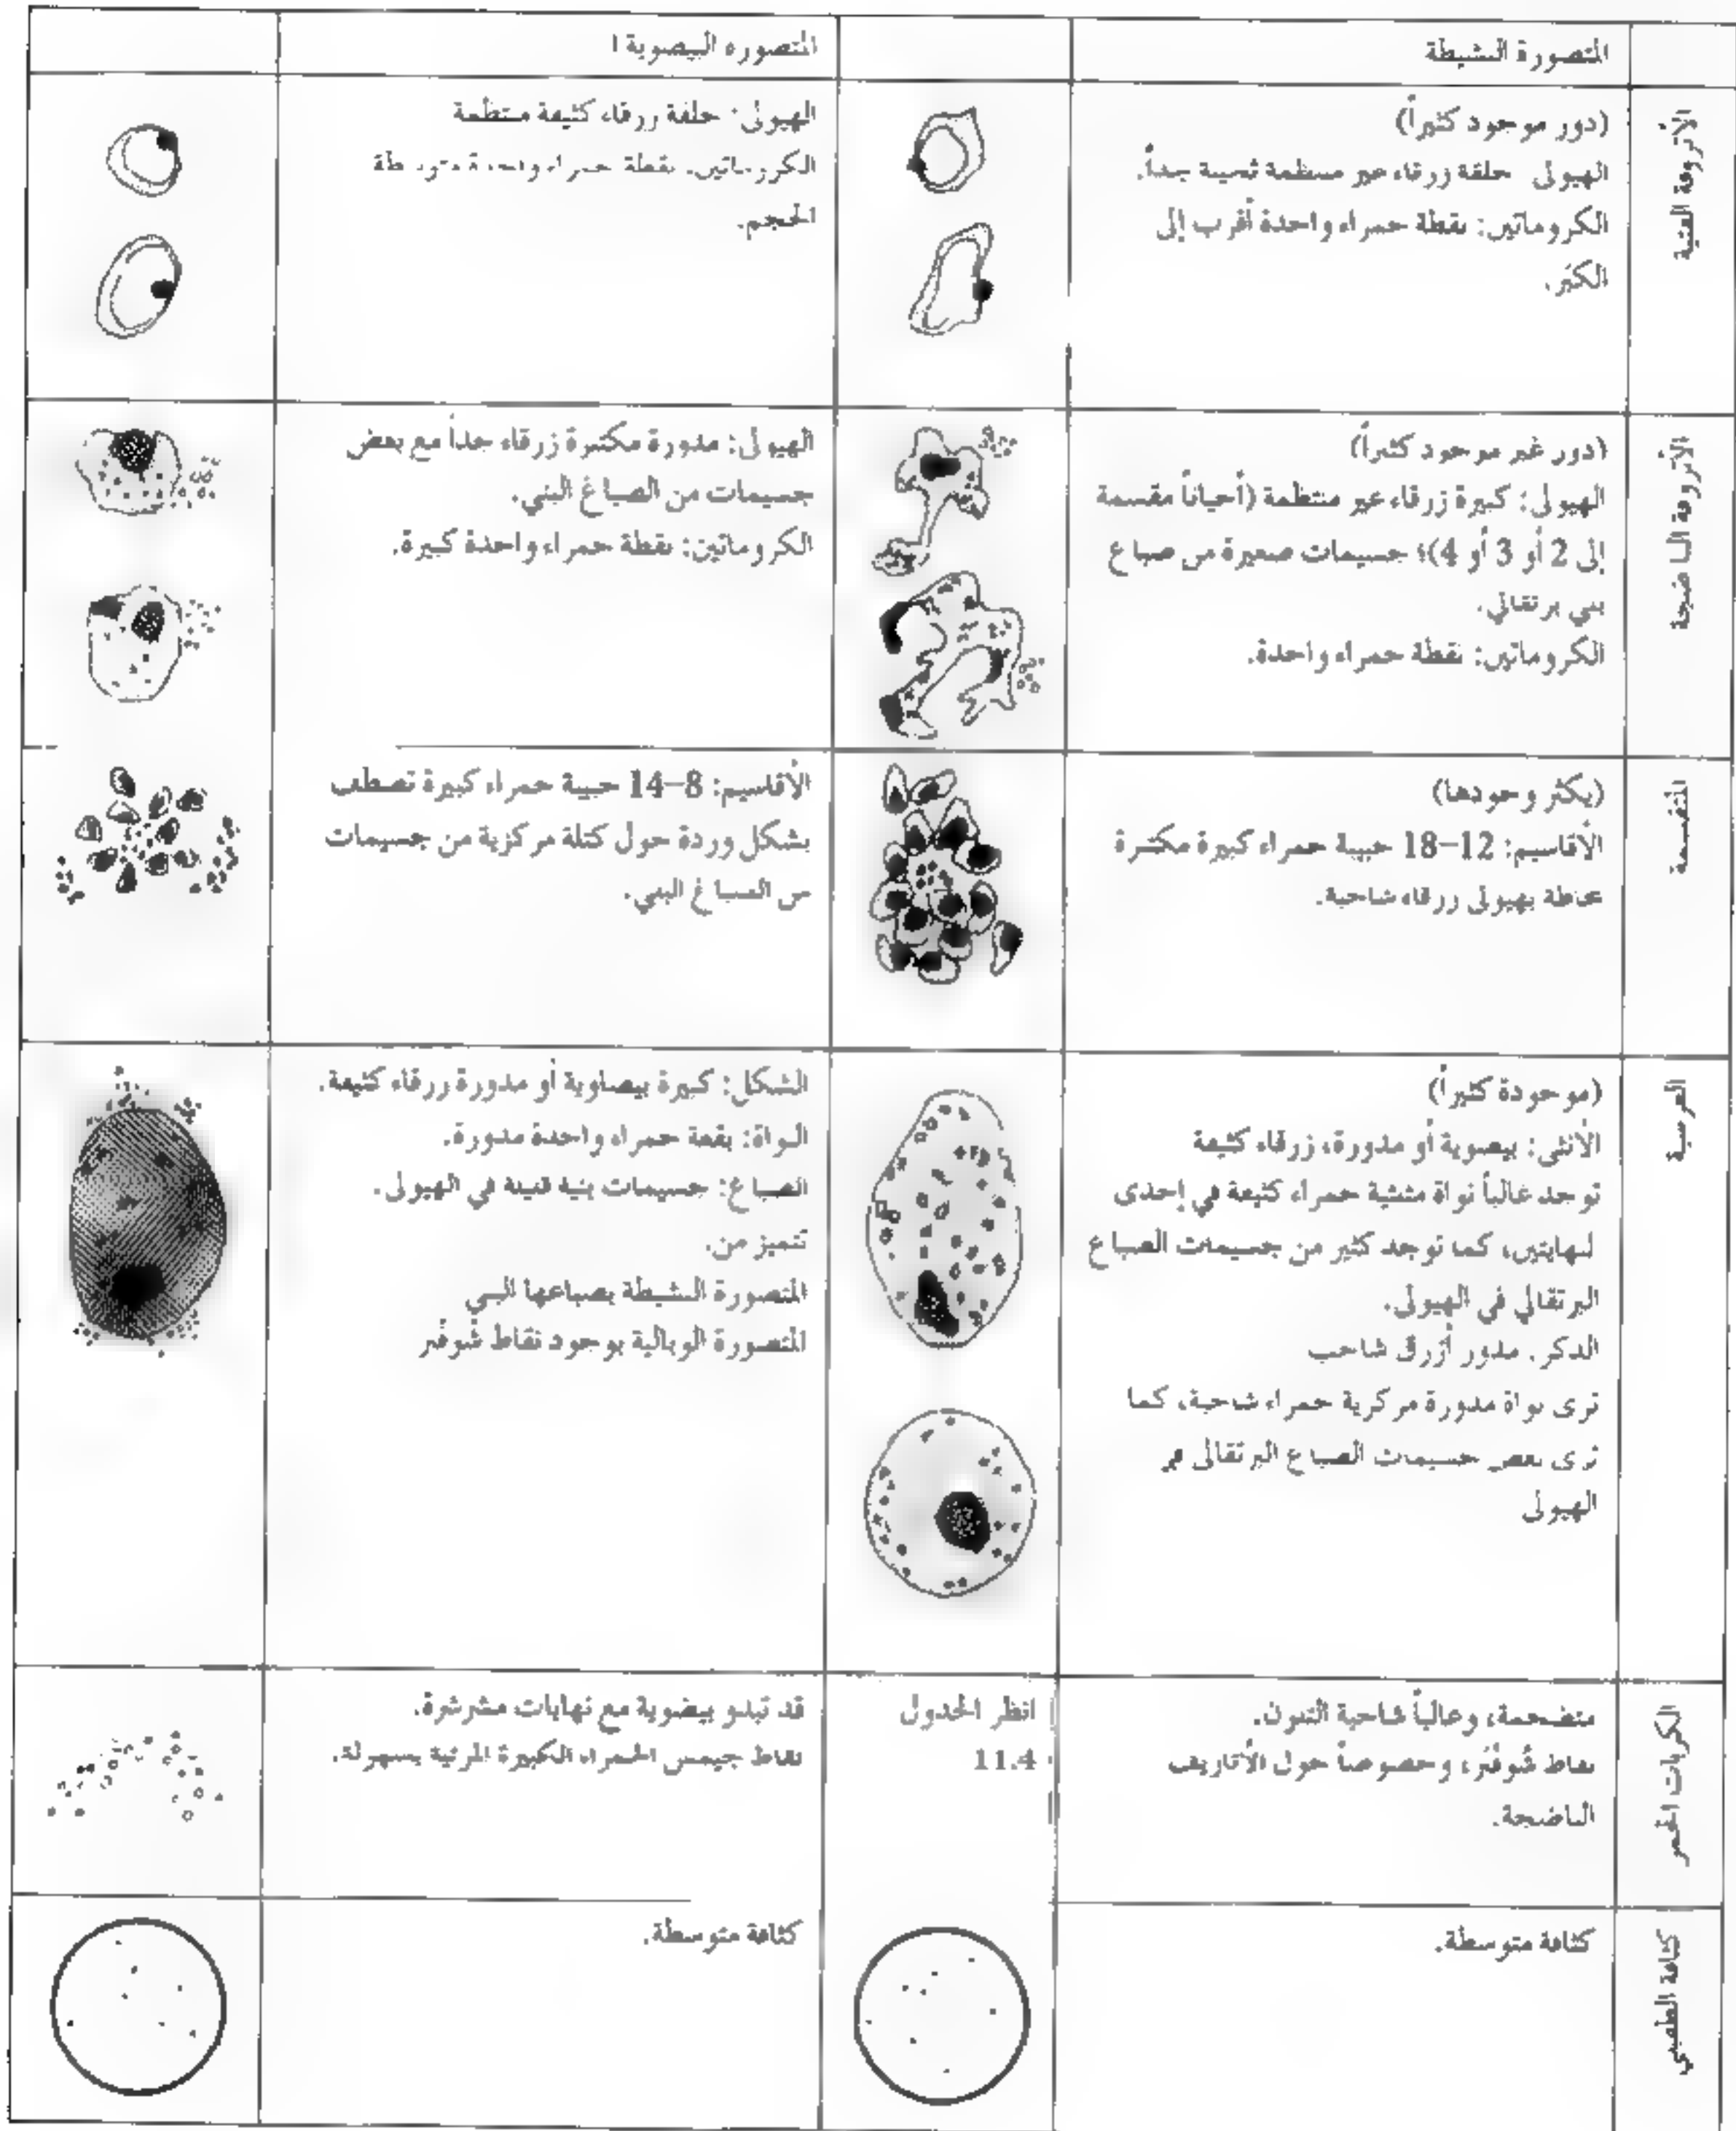 المتصورة النشيطة
المتصوره البيضوية ١
الأتروفة الفتية
(دور موجود كثيراً)
الهيولى حلقة زرقاء غير منتظمة ثخينة جداً.
الكروماتين: نقطة حمراء واحدة أقرب إلى
الكبَر.
الهيولى: حلقة زرقاء كثيفة منتظمة
الكروماتين. نقطة حمراء واحدة متوسطة
الحجم.
الأتروفة الناضجة
(دور غير موجود كثيراً)
الهيولى: كبيرة زرقاء غير منتظمة (أحياناً مقسمة
إلى 2 أو 3 أو 4)؛ جسيمات صغيرة من صباغ
بني برتقالي.
الكروماتين: نقطة حمراء واحدة.
الهيولى: مدورة مكتنزة زرقاء جداً مع بعض
جسيمات من الصباغ البني.
الكروماتين: نقطة حمراء واحدة كبيرة.
المنقسمة
(يكثر وجودها)
الأقاسيم: 12–18 حبيبة حمراء كبيرة مكتنزة
محاطة بهيولى زرقاء شاحبة.
الأقاسيم: 8–14 حبيبة حمراء كبيرة تصطف
بشكل وردة حول كتلة مركزية من جسيمات
من الصباغ البني.
العرسية
(موجودة كثيراً)
الأنثى: بيضوية أو مدورة، زرقاء كثيفة
توجد غالباً نواة مثلثية حمراء كثيفة في إحدى
النهايتين، كما توجد كثير من جسيمات الصباغ
البرتقالي في الهيولى.
الذكر. مدور أزرق شاحب
ترى نواة مدورة مركزية حمراء شاحبة، كما
ترى بعض جسيمات الصباغ البرتقالي في
الهيولى
الشكل: كبيرة بيضاوية أو مدورة زرقاء كثيفة.
النواة: بقعة حمراء واحدة مدورة.
الصباغ: جسيمات بنية قليلة في الهيولى.
تتميز من.
المتصورة النشيطة بصباغها البني
المتصورة الوبالية بوجود نقاط شُوفْنَر
الكريات الحمر
متضخمة، وغالباً شاحبة اللون.
نقاط شُوفْنَر، وخصوصاً حول الأتاريف
الناضجة.
انظر الجدول
11.4
قد تبدو بيضوية مع نهايات مشرشرة.
نقاط جيمس الحمراء الكبيرة المرئية بسهولة.
كثافة الطفيلي
كثافة متوسطة.
كثافة متوسطة.